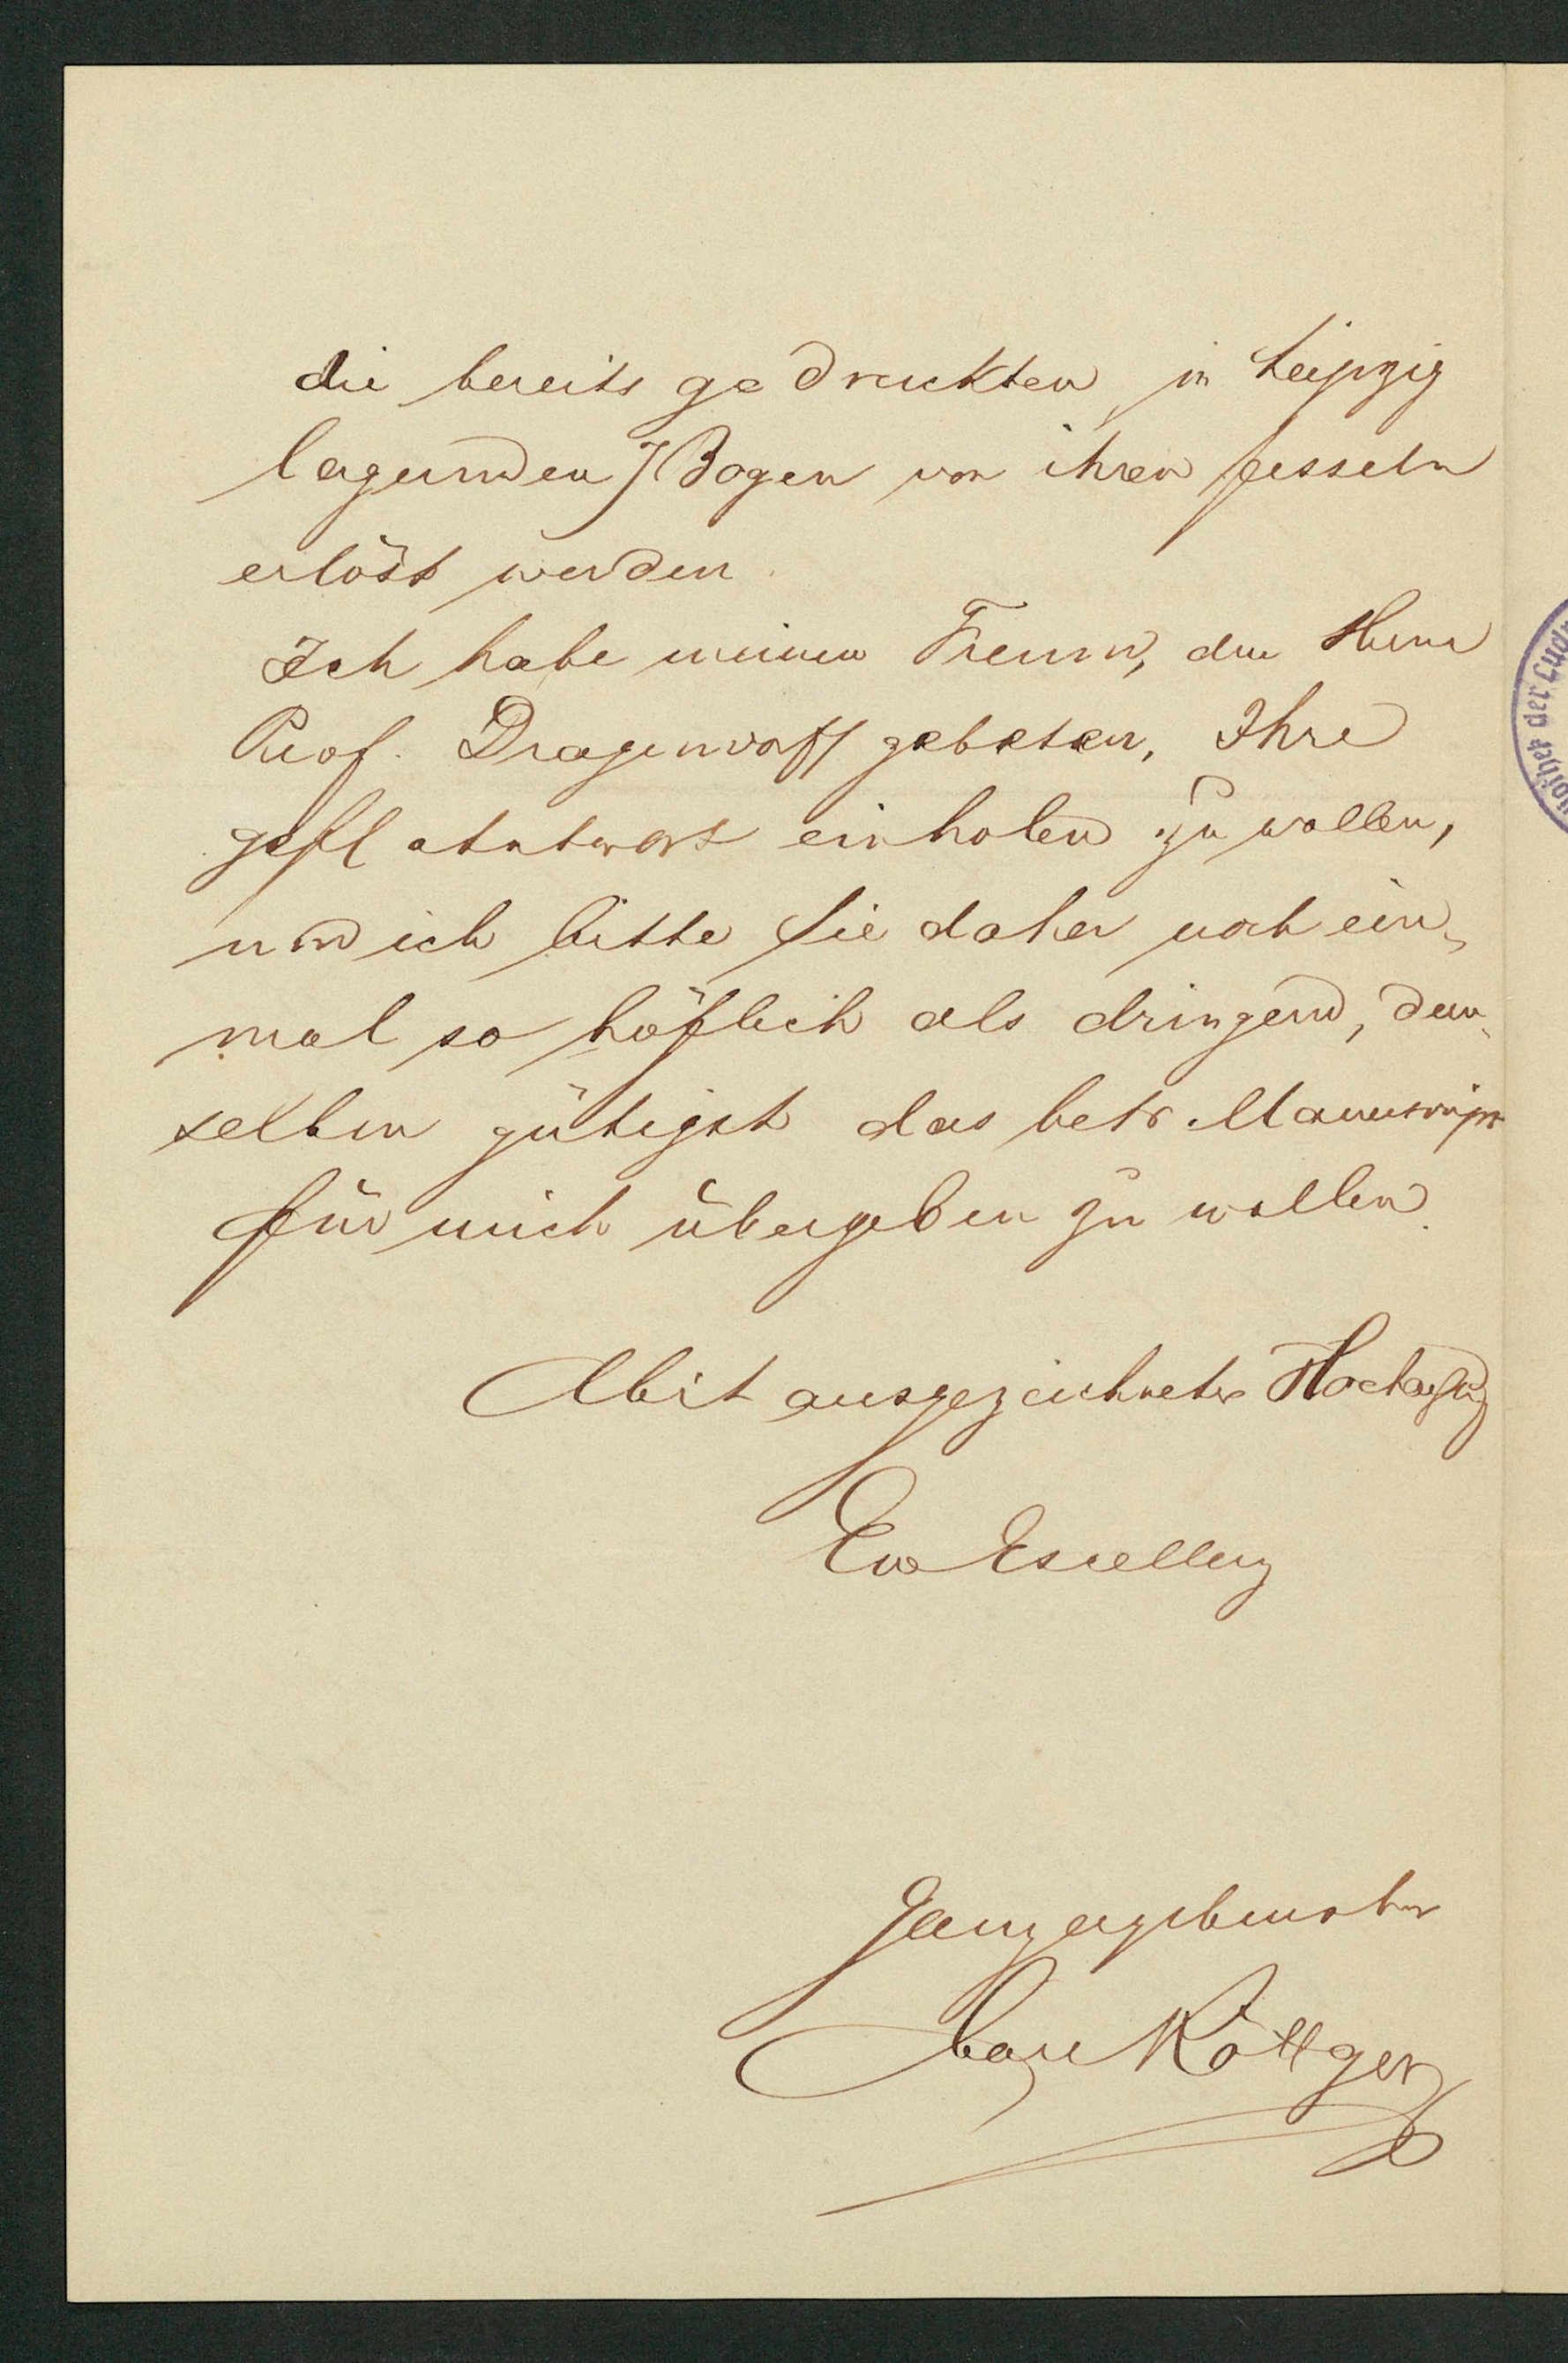 die bereits gedruckten, in Leipzig
lagernden 7 Bogen von ihren Fesseln
erlöst werden.
Ich habe meinen Freund, den Herrn
Prof. Dragendorff gebeten, Ihre
gefl Antwort einholen zu wollen,
und ich bitte Sie daher noch ein-
mal so höflich als dringend, dem-
selben gütigst das betr. Manuscript
für mich übergeben zu wollen.
Mit ausgezeichneter Hochachtung
Ew Excellenz
Ganz ergebenster
Carl Röttger